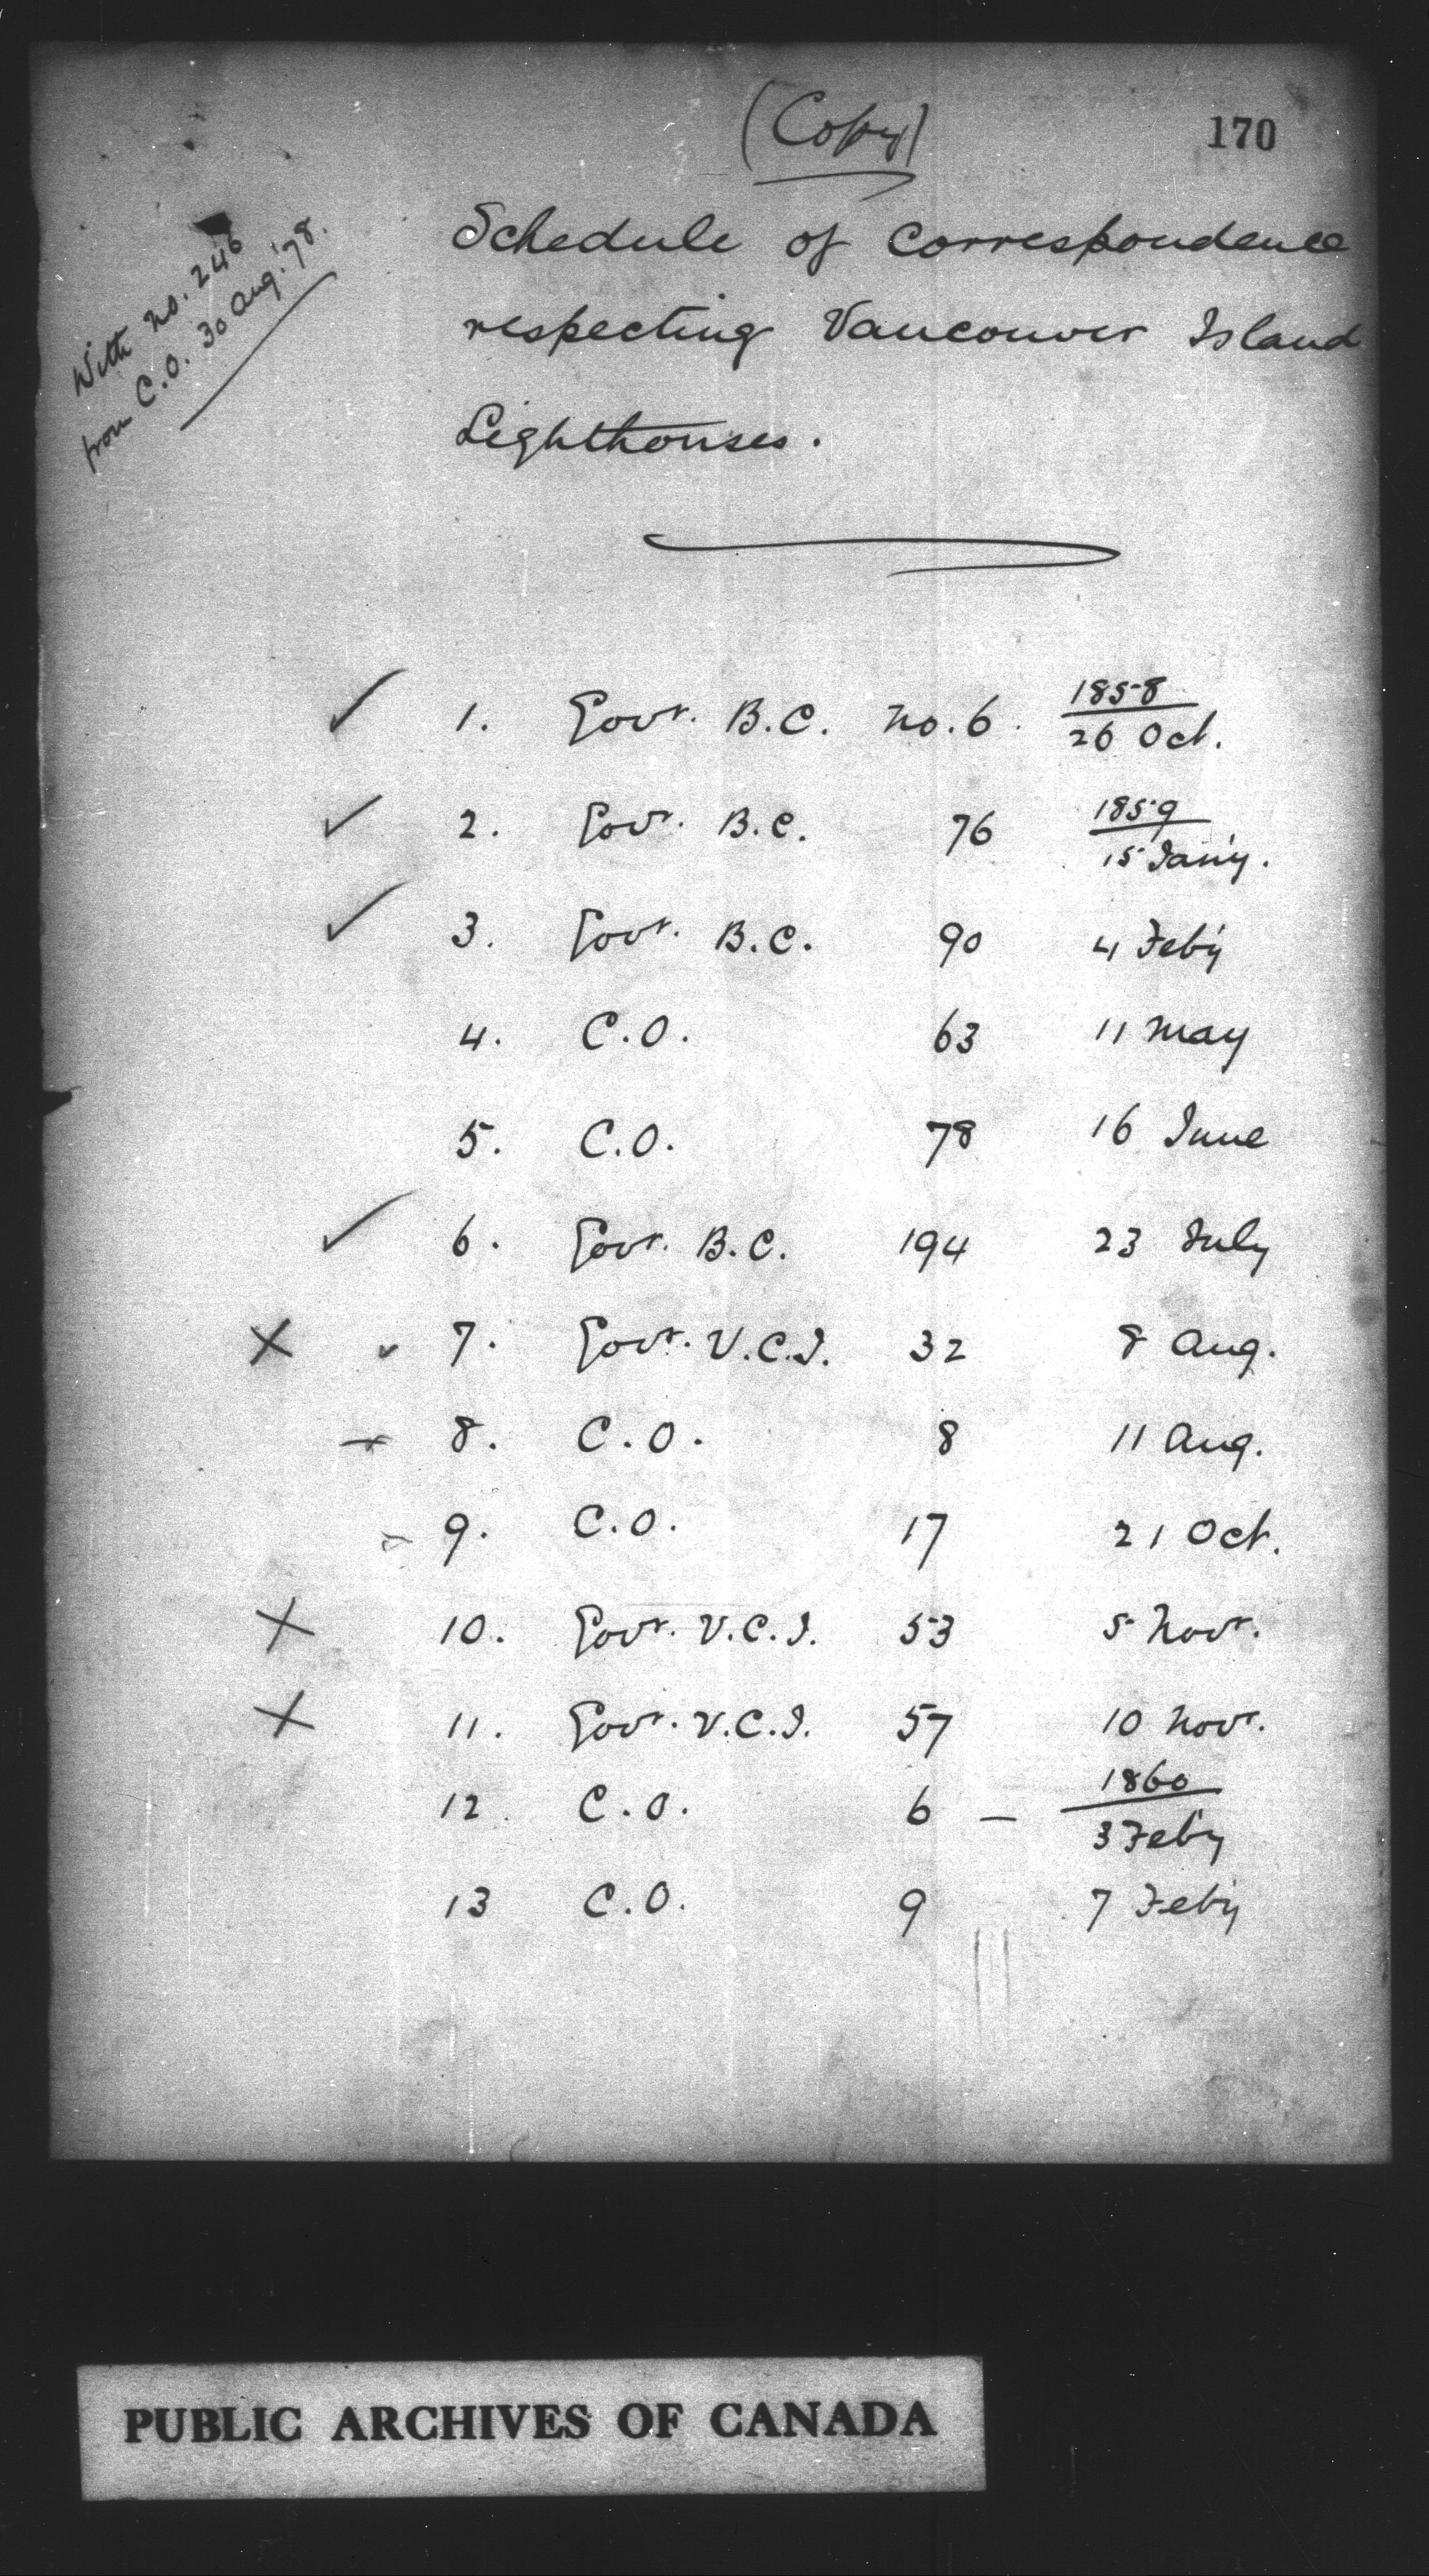 (Copy)
170
With no. 246
from C.O. 30 Aug. '78.
Schedule of Correspondence
respecting Vancouver Island
Lighthouses.
✓ 1. Govr. B.C. no. 6. 1858
26 Oct.
✓ 2. Govr. B.C. 76 1859
15 Jan'y.
✓ 3. Govr. B.C. 90 4 Feb'y
4. C.O. 63 11 May
5. C.O. 78 16 June
✓ 6. Govr. B.C. 194 23 July
X ✓ 7. Govr. V.C.I. 32 8 Aug.
8. C.O. 8 11 Aug.
9. C.O. 17 21 Oct.
X 10. Govr. V.C.I. 53 5 Novr.
X 11. Govr. V.C.I. 57 10 Novr.
12. C.O. 6 — 1860
3 Feb'y
13 C.O. 9 7 Feb'y
PUBLIC ARCHIVES OF CANADA